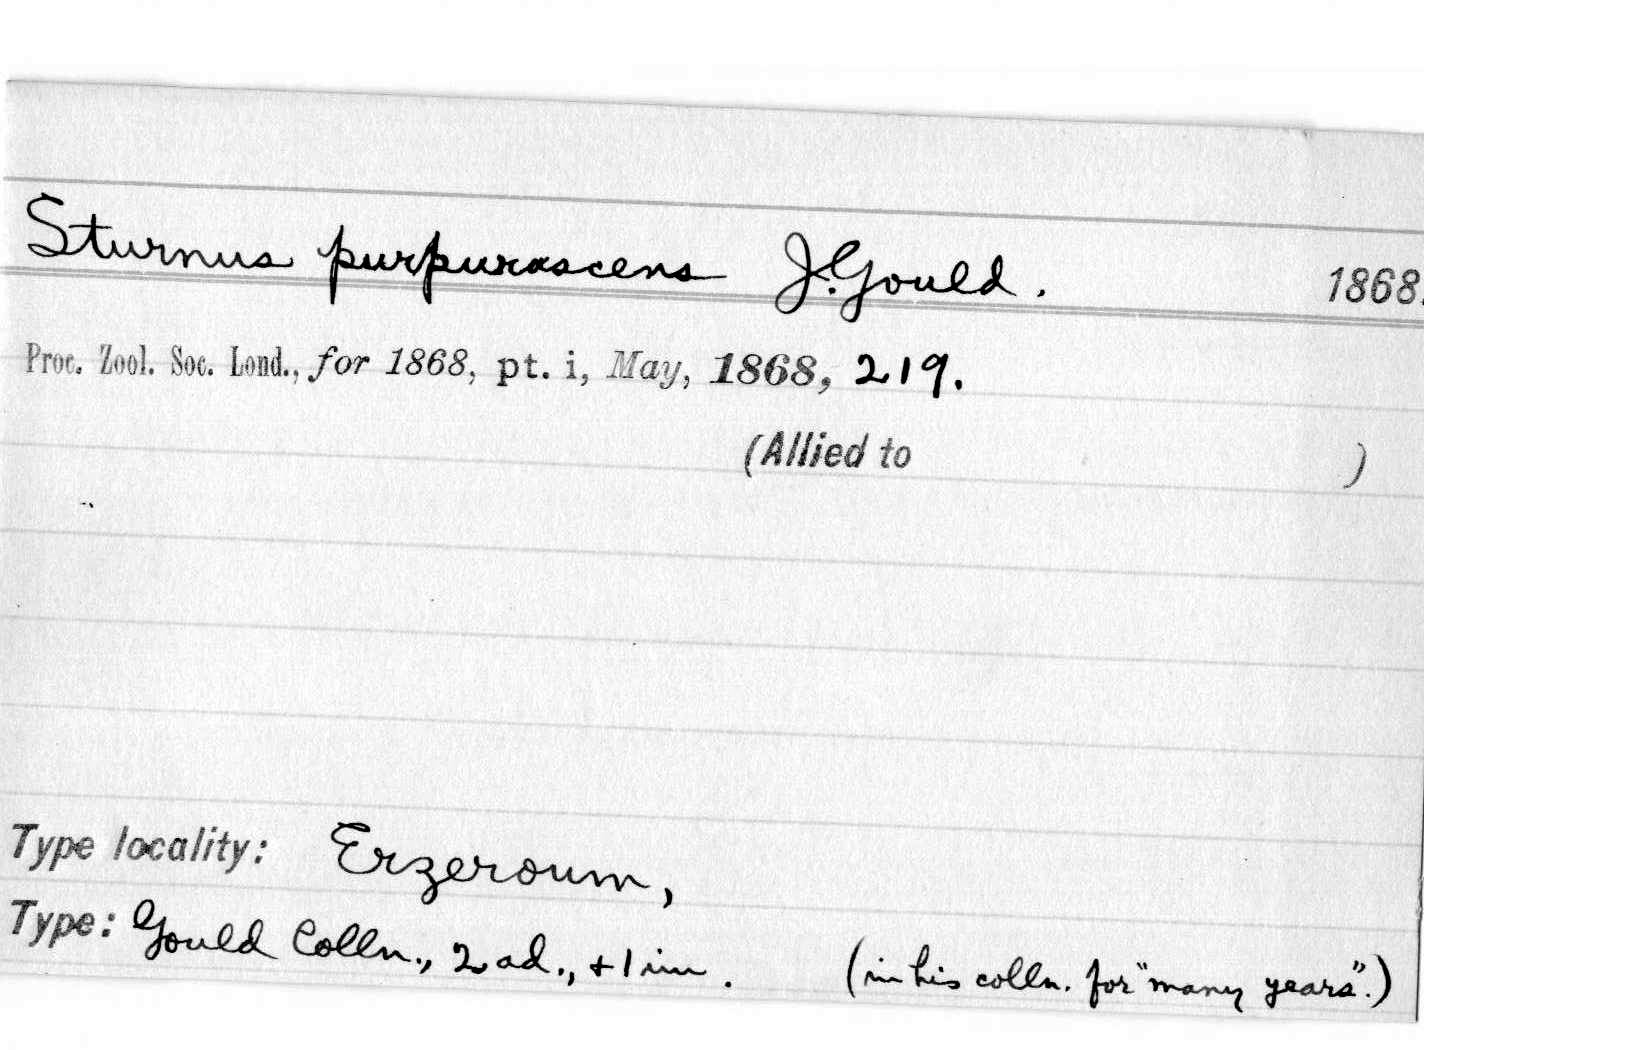 Sturnus purpurascens J. Gould. 1868.
Proc. Zool. Soc. Lond., for 1868, pt. i, May, 1868, 219.
(Allied to )
Type locality: Erzeroum,
Type: Gould Colln., 2 ad., + 1 im. (in his colln. for "many years".)